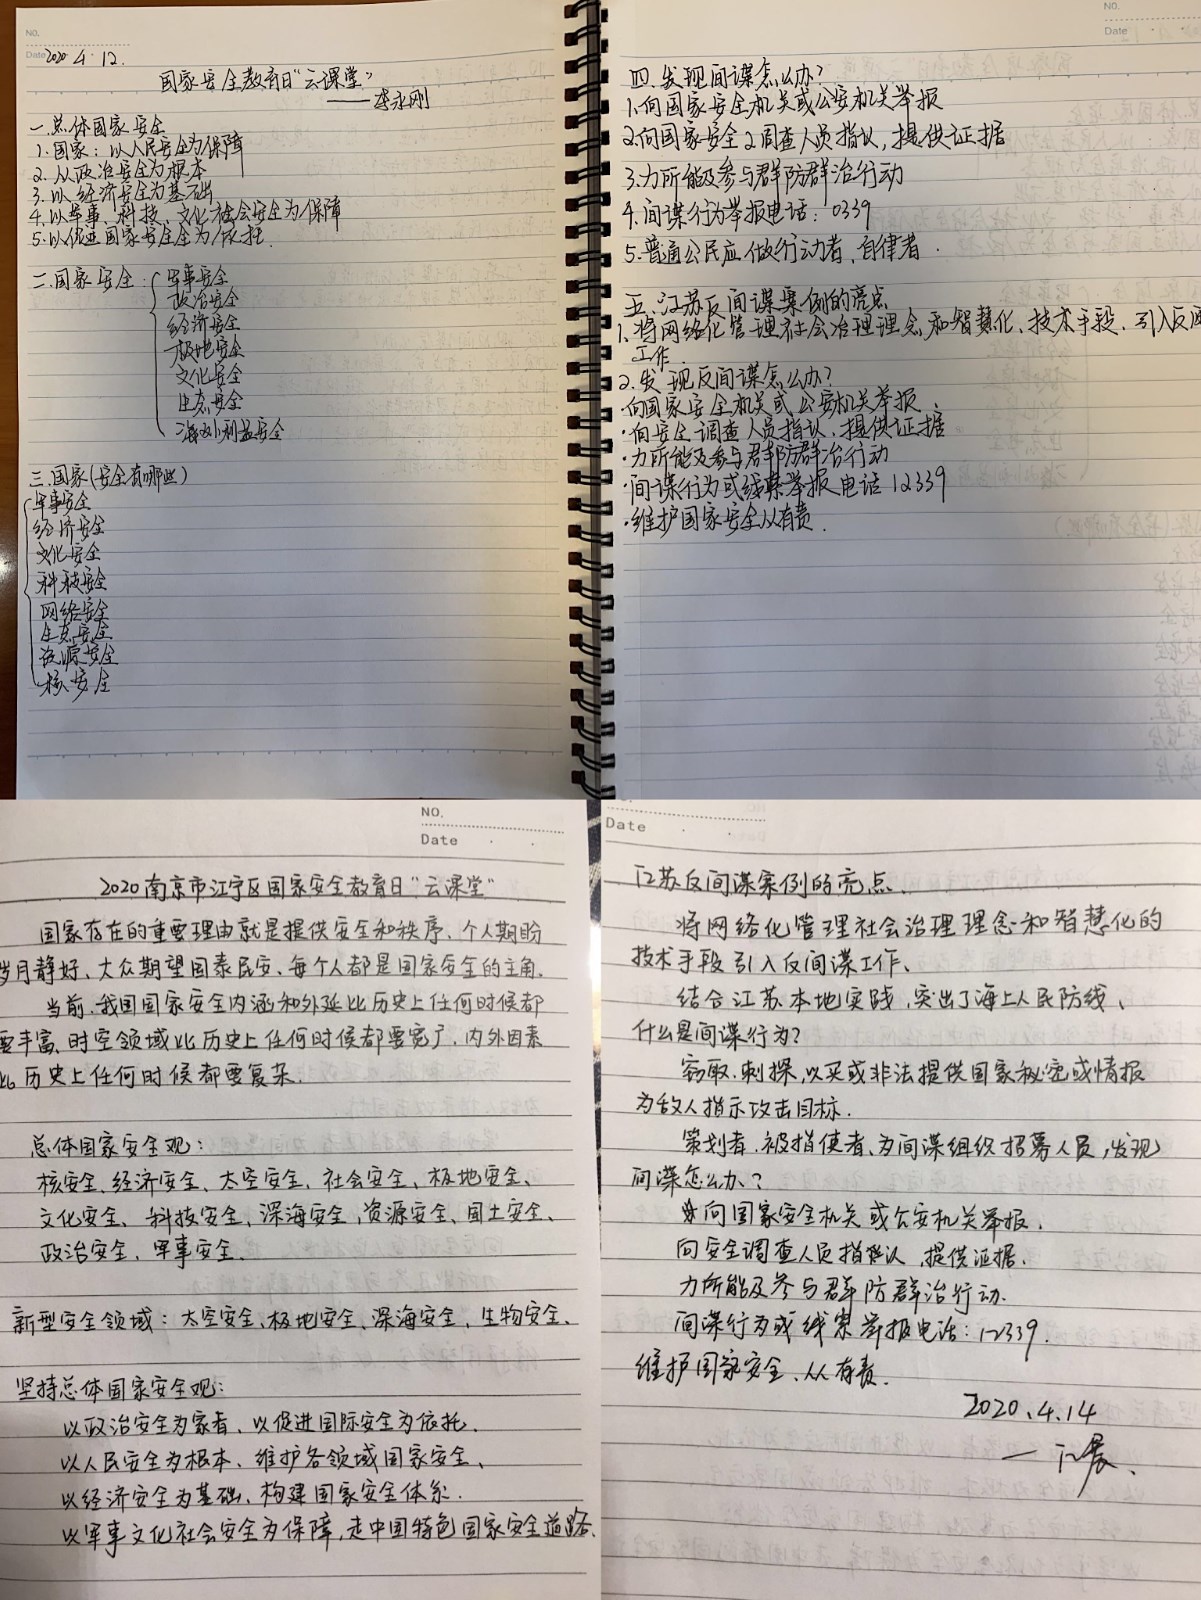 NO.
Date 2020 4.12.
国家安全教育日“云课堂”
——李永刚
一.总体国家安全
1.国家：以人民安全为保障
2.从政治安全为根本
3.以经济安全为基础
4.以军事、科技、文化社会安全为保障
5.以促进国家安全全为依托.
二.国家安全:
军事安全
政治安全
经济安全
极地安全
文化安全
生态安全
海外利益安全
三.国家(安全有哪些)
军事安全
经济安全
文化安全
科技安全
网络安全
生态安全
资源安全
核安全
NO.
Date
四.发现间谍怎么办?
1.向国家安全机关或公安机关举报
2.向国家安全2调查人员指认,提供证据
3.力所能及参与群防群治行动
4.间谍行为举报电话：0339
5.普通公民应做行动者,自律者.
五.江苏反间谍案例的亮点
1.将网络化管理社会治理理念和智慧化、技术手段.引入反间
工作.
2.发现反间谍怎么办?
·向国家安全机关或公安机关举报.
·向安全调查人员指认,提供证据
·力所能及参与群防群治行动
·间谍行为或线索举报电话12339
·维护国家安全从有责.
NO.
Date
2020南京市江宁区国家安全教育日“云课堂”
国家存在的重要理由就是提供安全和秩序、个人期盼
岁月静好、大众期望国泰民安、每个人都是国家安全的主角.
当前.我国国家安全内涵和外延比历史上任何时候都
要丰富、时空领域比历史上任何时候都要宽了.内外因素
比历史上任何时候都要复杂.
总体国家安全观：
核安全、经济安全、太空安全、社会安全、极地安全、
文化安全、科技安全、深海安全,资源安全、国土安全、
政治安全、军事安全.
新型安全领域：太空安全、极地安全、深海安全,生物安全、
坚持总体国家安全观：
以政治安全为家者、以促进国际安全为依托.
以人民安全为根本、维护各领域国家安全、
以经济安全为基础、构建国家安全体系.
以军事文化社会安全为保障,走中国特色国家安全道路.
NO.
Date
江苏反间谍案例的亮点.
将网络化管理社会治理理念和智慧化的
技术手段引入反间谍工作、
结合江苏本地实践,突出了海上人民防线、
什么是间谍行为?
窃取.刺探,以买或非法提供国家秘密或情报
为敌人指示攻击目标.
策划者.被指使者、为间谍组织招募人员,发现
间谍怎么办、?
向国家安全机关或公安机关举报.
向安全调查人员指认、提供证据.
力所能及参与群防群治行动.
间谍行为或线索举报电话:12339.
维护国家安全、从有责.
2020.4.14